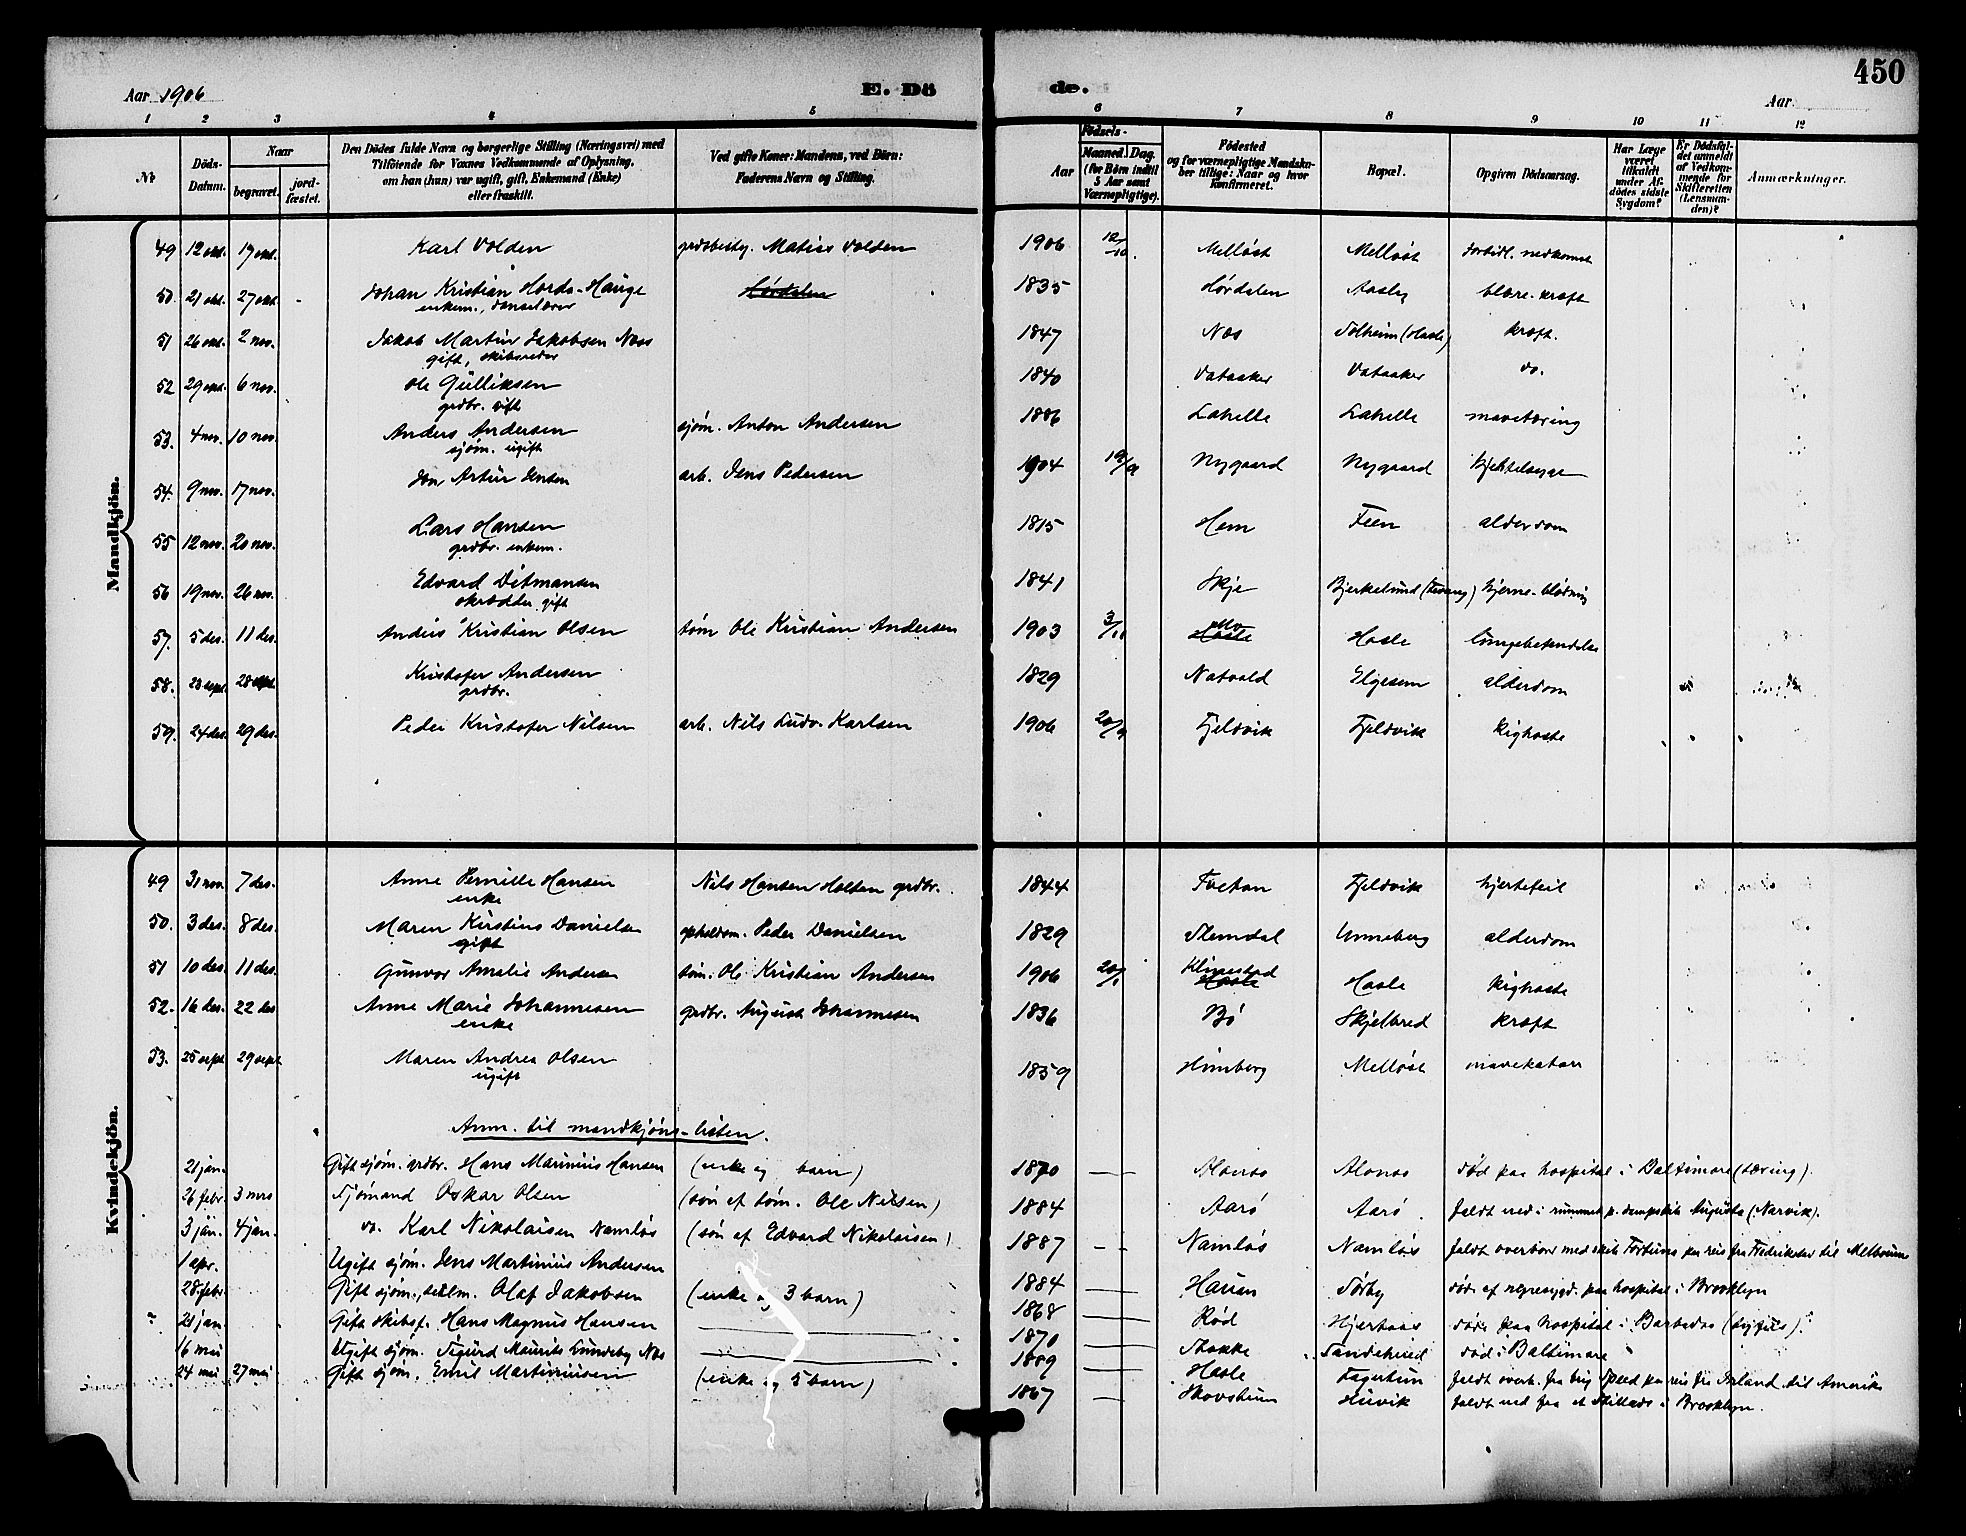 450
Aar 1906
E. Dö
de.
Aar
1 2 3 4 5 6 7 8 9 10 11 12
№
Döds-Datum.
Naar
begravet.
jord-fæstet.
Den Dödes fulde Navn og borgerlige Stilling (Næringsvei) med
Tilföiende for Voxnes Vedkommende af Oplysning,
om han (hun) var ugift, gift, Enkemand (Enke)
eller fraskilt.
Ved gifte Koner: Mandens, ved Börn:
Faderens Navn og Stilling.
Födsels-
Aar
Maaned. Dag.
(for Börn indtil
5 Aar samt
Værnepligtige).
Födested
og for værnepligtige Mandska-
ber tillige: Naar og hvor
konfirmeret.
Bopæl.
Opgiven Dödsaarsag.
Har Læge
været
tilkaldt
under Af-
dödes sidste
Sygdom?
Er Dödsfal-
det anmeldt
af Vedkom-
mende for
Skifteretten
(Lensman-
den)?
Anmærkninger.
Mandkjön.
49 12 okt. 17 okt. Karl Volden grdbesty. Matias Volden 1906 12/10 Melløst Melløst fortidl. nedkomst
50. 21 okt. 27 okt. Johan Kristian Hords-Hauge Hørdalen 1835 Hørdalen Aasly blære-kræft
enkem., danselærer
51 26 okt. 2 nov. Jakob Martin Jakobsen Næss 1847 Næs Solheim (Hasle) kræft.
gift, skibsreder
52 29 okt. 6 nov. Ole Gulliksen 1840 Vataaker Vataaker do.
grdbr. gift
53. 4 nov. 10 nov. Anders Andersen sjøm. Anton Andersen 1886 Lahelle Lahelle mavetæring
sjøm. ugift
54. 9 nov. 17 nov. Jon Artur Jensen arb. Jens Pedersen 1904 Nygaard Nygaard
55 12 nov. 20 nov. Lars Hansen 1815 Hem Feen alderdom
grdbr. enkem.
56 19 nov. 26 nov. Edvard Ditmansen 1841 Skje Bjerkelund hjerne-blødning
skrædder, gift
57. 5 des. 11 des. Anders Kristian Olsen tøm Ole Kristian Andersen 1903 3/11 Mo Hasle Hasle lungebetendelse
58. 23 sept. 28 sept. Kristofer Andersen 1829 Natvald Elgesem alderdom
grdbr.
59. 24 des. 29 des. Peder Kristofer Nilsen arb. Nils Ludv. Karlsen 1906 20/9 Fjeldvik Fjeldvik kighoste
Kvindekjön.
49 31 nov. 7 des. Anne Pernille Hansen Nils Hansen Holten grdbr. 1844 Fjeldvik hjertefeil
enke
50. 3 des. 8 des. Maren Kirstine Danielsen opholdsm. Peder Danielsen 1829 Stemdal Unneberg alderdom
gift
51 10 des. 11 des. Gunvor Amalie Andersen tøm. Ole Kristian Andersen 1906 20/1 Klinestad Hasle Hasle kighoste
52. 16 des. 22 des Anne Marie Johannesen grdbr. August Johannesen 1836 Bø Skjelbred kræft
enke
53. 25 sept 29 sept Maren Andrea Olsen 1859 Himberg Melløst mavekatar
ugift
Anm. til mandkjøns-listen.
21 jan. Gift sjøm. grdbr. Hans Marinius Hansen (enke og barn) 1870 — død paa hospital i Baltimore (tæring).
26 febr. 3 mrs Sjømand Oskar Olsen (søn af tøm. Ole Nilsen) 1884 Aarø Aarø. faldt ned i rummet p. dampskib Augusta (Narvik).
3 jan. 4 jan. do. Karl Nikolaisen Namløs (søn af Edvard Nikolaisen) 1887 - - Namløs Namløs faldt overbord med skib Fortuna paa reis fra Fredrikstad til Melbourne
1 apr. Ugift sjøm. Jens Martinius Andersen 1884 — Hauen Sørby død af nyresygd. paa hospital i Brooklyn
28. febr. Gift sjøm., seilm. Olaf Jakobsen (enke og 3 barn) 1868 — Rød Hjertnæs døde paa hospital i Barbados (syfilis).
21 jan. Gift skibsf. Hans Magnus Hansen — 1870 — Stokke Sandefjord død i Baltimore
16 mai Ugift sjøm. Sigurd Maurits Lundeby Næs — 1889 — Hasle Fagertun faldt overb. fra brig Speed paa reis fra Island til Amerika
24 mai 27 mai Gift sjøm. Emil Martiniusen (enke og 5 barn) 1867 — Skovstuen Huvik faldt ned fra et stillads i Brooklyn.